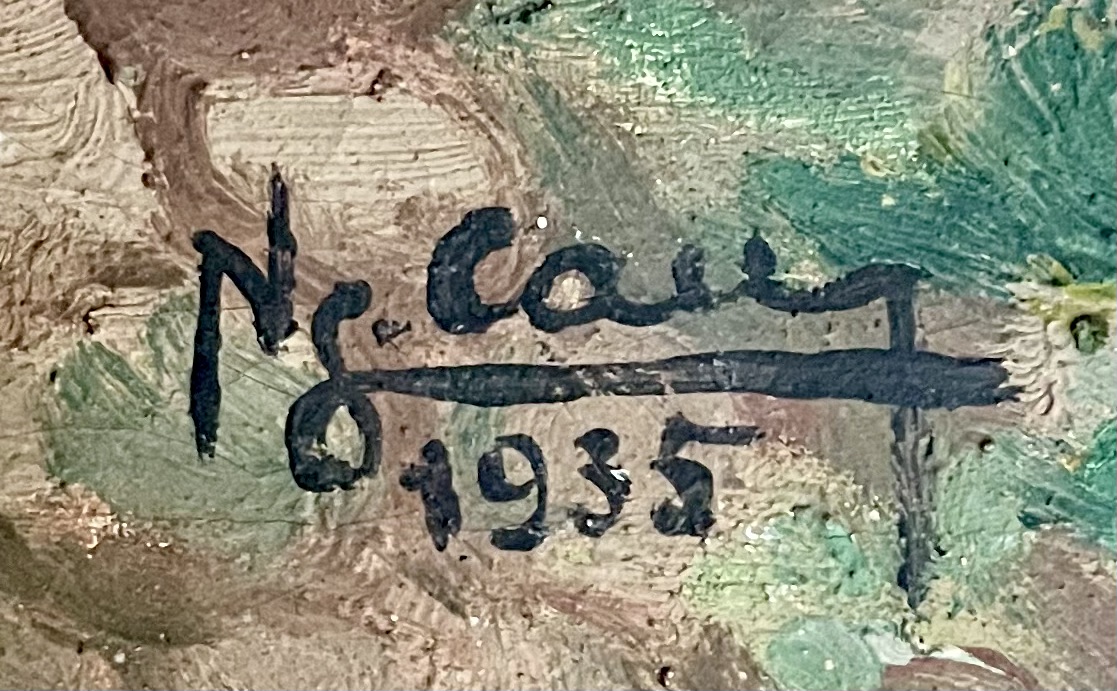 Ng Cauy
1935